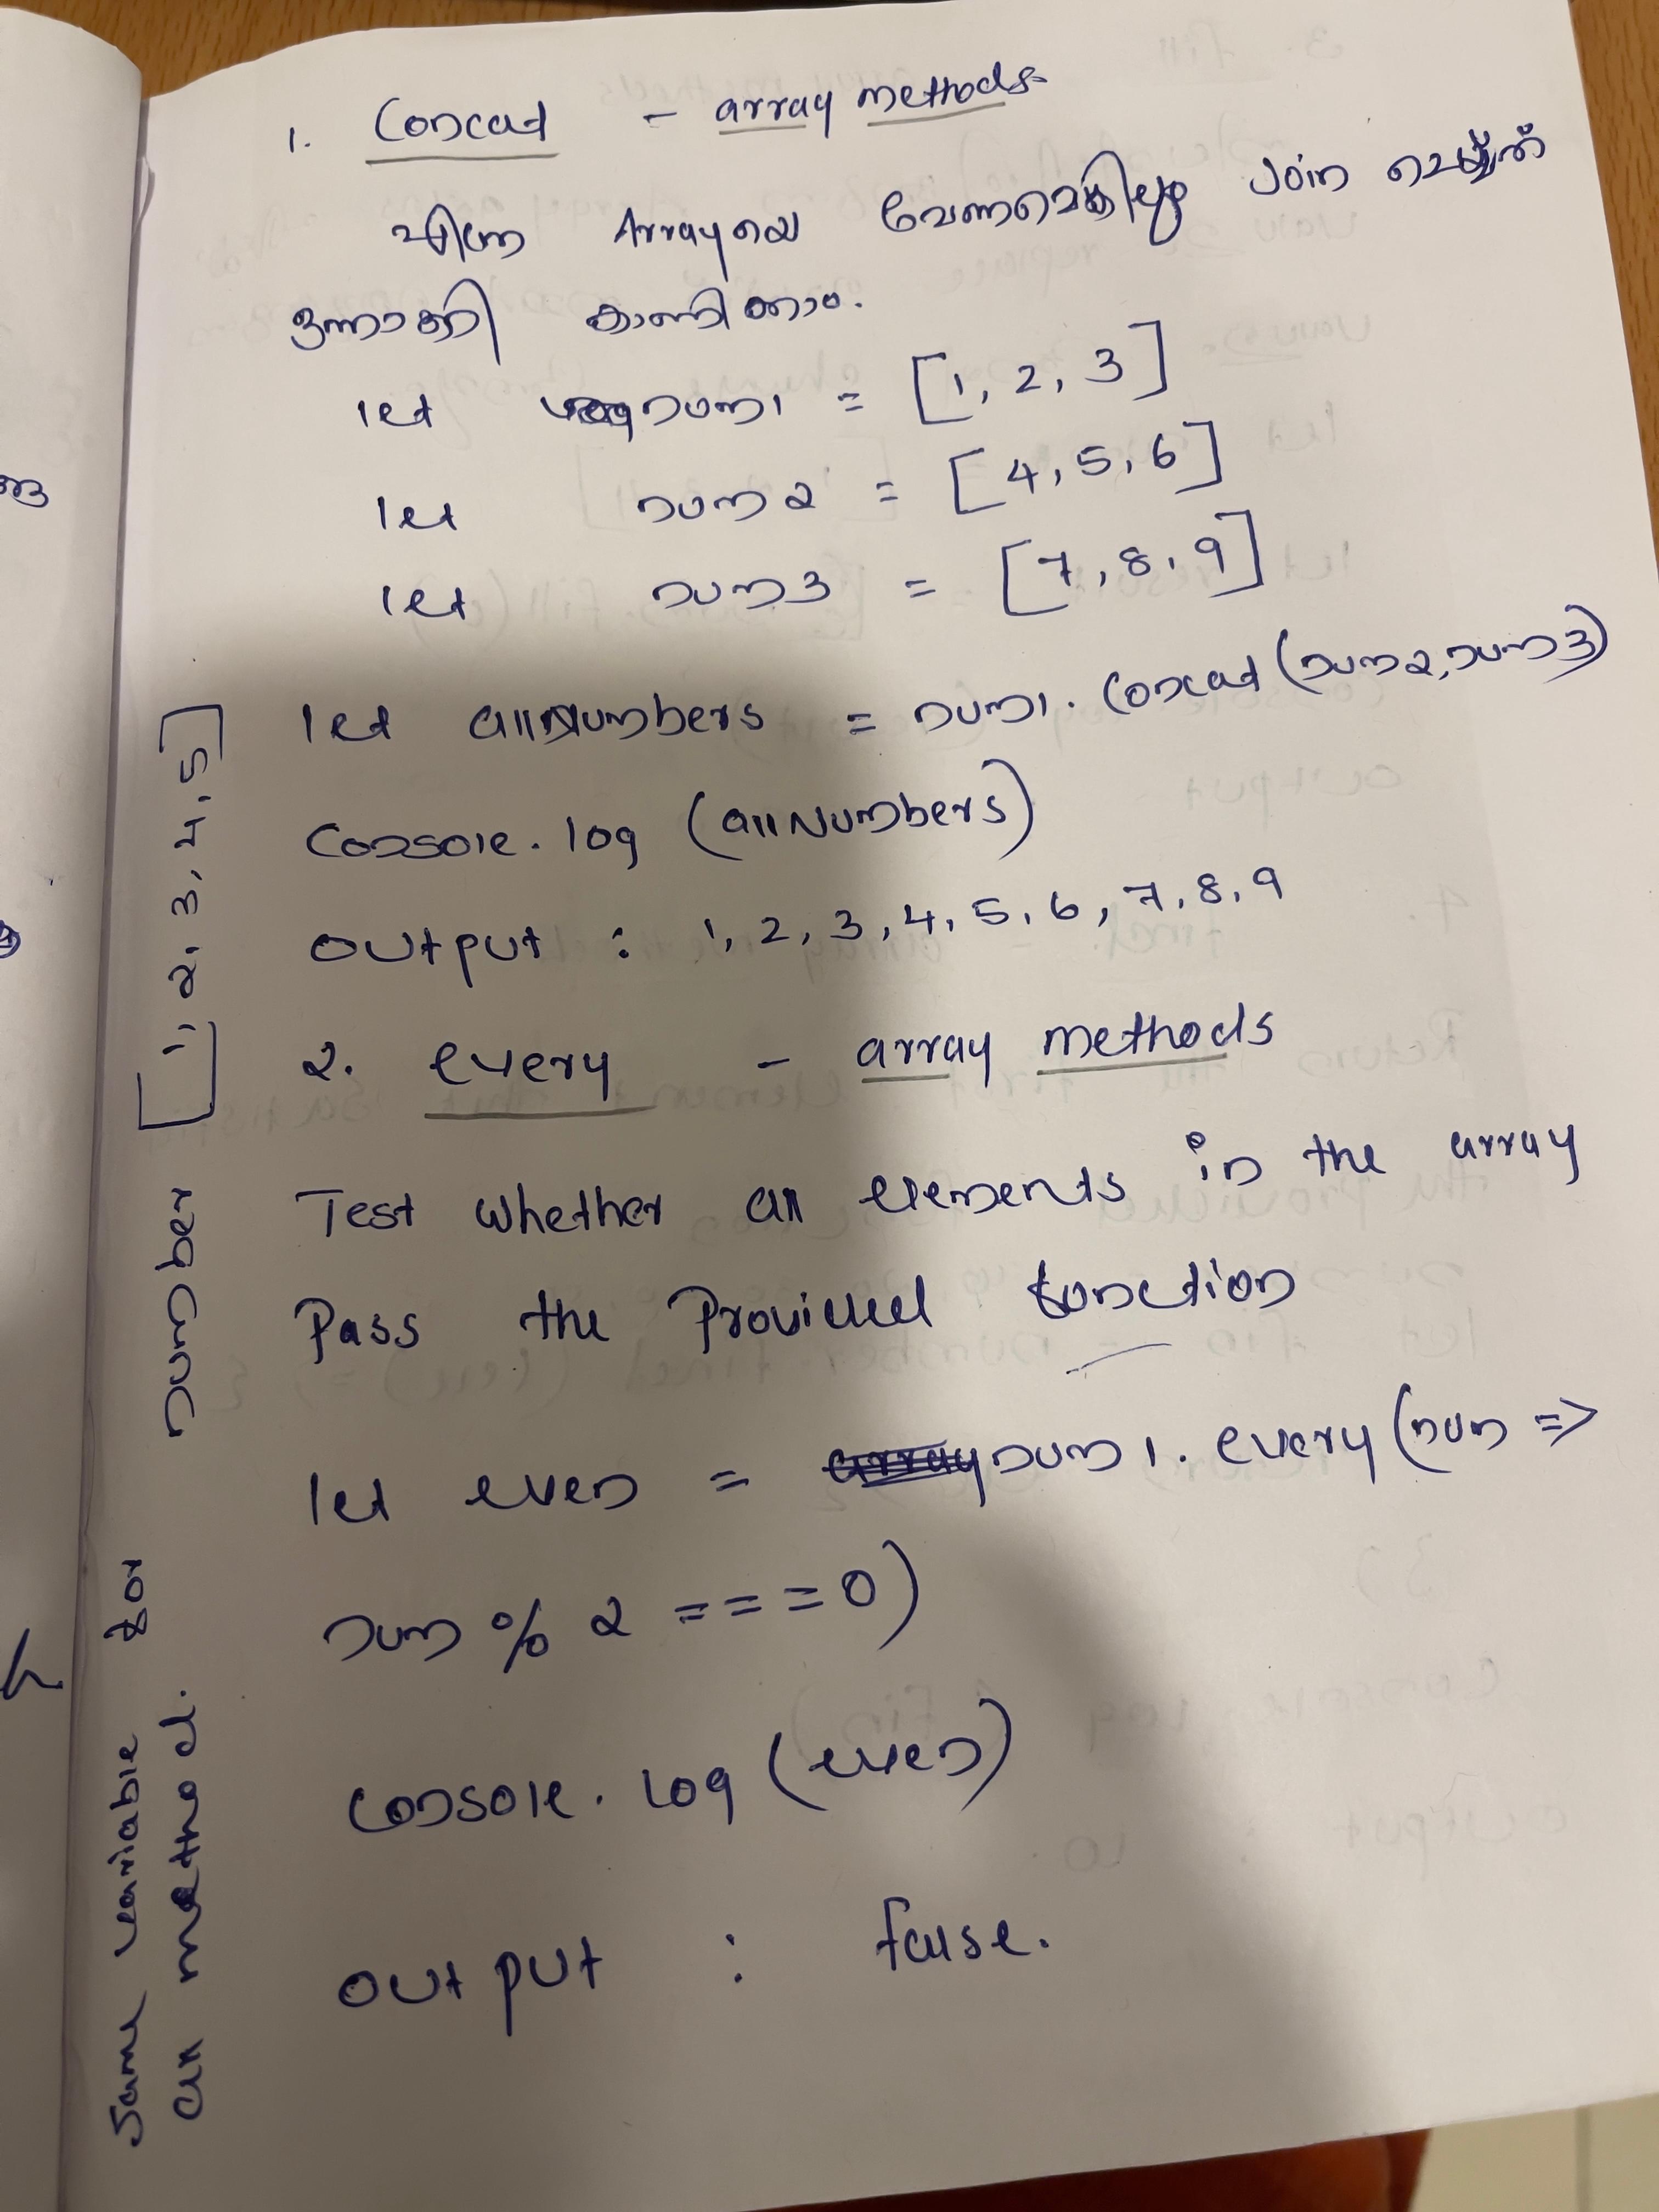 1. Concat - array methods
ഏത് Arrayയെ വേണമെങ്കിലും Join ചെയ്ത്
ഒന്നാക്കി കാണിക്കാം.
let num1 = [1, 2, 3]
let num2 = [4, 5, 6]
let num3 = [7, 8, 9]
let allNumbers = num1. Concat (num2, num3)
Console. log (allNumbers)
output : 1, 2, 3, 4, 5, 6, 7, 8, 9
2. every - array methods
Test whether all elements in the array
Pass the Provided function
let even = num1. every (num =>
num % 2 === =0)
console. log (even)
output : false.
Same variable for number [1, 2, 3, 4, 5]
all method.